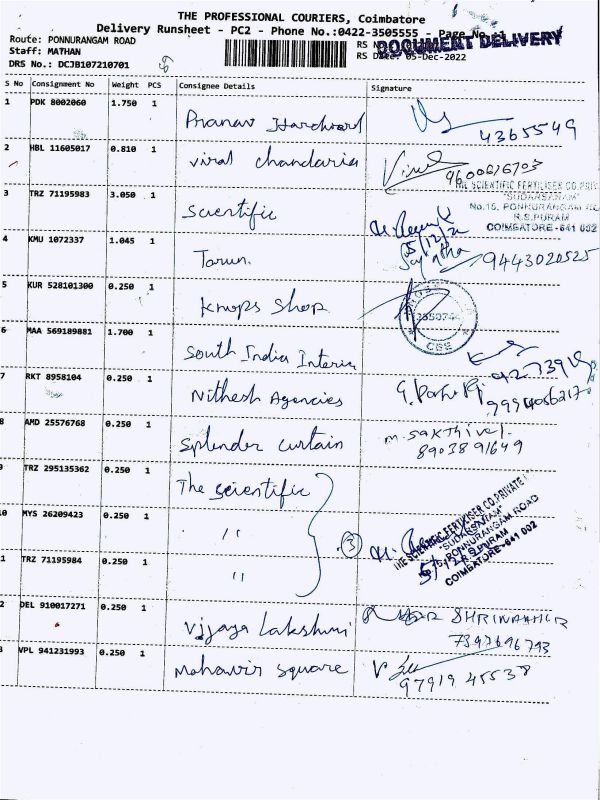 THE PROFESSIONAL COURIERS, Coimbatore
Delivery Runsheet - PC2 - Phone No.:0422-3505555 - Page No.
DOCUMENT DELIVERY
Route: PONNURANGAM ROAD
RS No
Staff: MATHAN
RS Date: 05-Dec-2022
DRS No.: DCJB107210701
S No Consignment No Weight PCS Consignee Details Signature
1 PDK 8002060 1.750 1 Pranav Hardward
4365549
2 HBL 11605017 0.810 1 viral chandaria
9600676703
3 TRZ 71195983 3.050 1 Scientific
THE SCIENTIFIC FERTILISER CO.PRIV
"SUDARSANAM"
No.15, PONNURANGAM RO
R.S.PURAM
COIMBATORE-641 002
5/12/22
4 KMU 1072337 1.045 1 Tarun.
9443020525
5 KUR 528101300 0.250 1 Knops Shop
CBE
6 MAA 569189881 1.700 1 South India Interia
7 RKT 8958104 0.250 1 Nithesh Agencies
9994056217
8 AMD 25576768 0.250 1 Splender curtain
M. SAKTHIVEL.
8903891649
9 TRZ 295135362 0.250 1 The Scientific
10 MYS 26209423 0.250 1 "
3
THE SCIENTIFIC FERTILISER CO.PRIVATE
"SUDARSANAM"
No.15, PONNURANGAM ROAD
R.S.PURAM
COIMBATORE-641 002
1 TRZ 71195984 0.250 1 "
2 DEL 910017271 0.250 1 Vijaya Lakshmi
7397696793
3 VPL 941231993 0.250 1 Mahavir Square
97919 45538